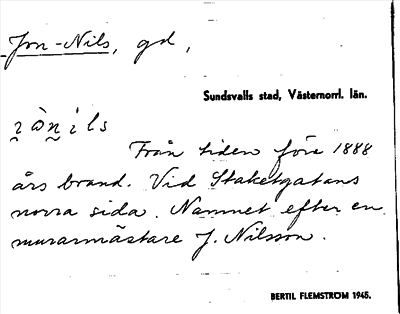 Jon-Nils, gd,
Sundsvalls stad, Västernorrl. län.
Från tiden före 1888
års brand. Vid Staketgatans
norra sida. Namnet efter en
murarmästare J. Nilsson.
BERTIL FLEMSTRÖM 1945.